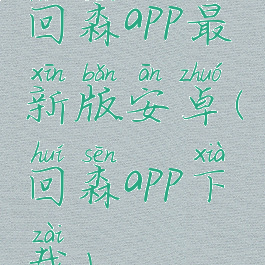 回森app最
xīn bǎn ān zhuó
新版安卓(
huí sēn xià
回森app下
zài
载)